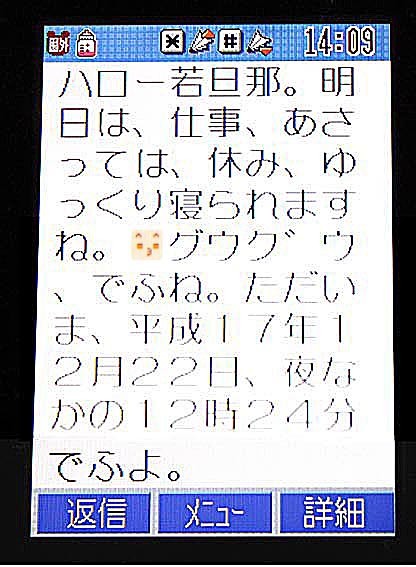 圏外 14:09
ハロー若旦那。明
日は、仕事、あさ
っては、休み、ゆ
っくり寝られます
ね。グウグ゛ウ
、でふね。ただい
ま、平成１７年１
２月２２日、夜な
かの１２時２４分
でふよ。
返信 ﾒﾆｭｰ 詳細